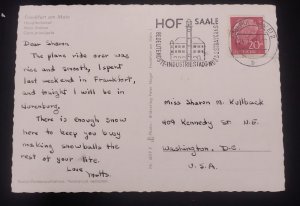 Frankfurt am Main
HOF SAALE
20
Dear Sharon
The plane ride over was
nice and smooth, I spent
last weekend in Frankfurt,
and tonight I will be in
Nurenburg.
There is enough snow
here to keep you busy
making snowballs the
rest of your life.
Love
Miss Sharon M. Kullback
409 Kennedy St. N.E.
Washington, D.C.
U.S.A.